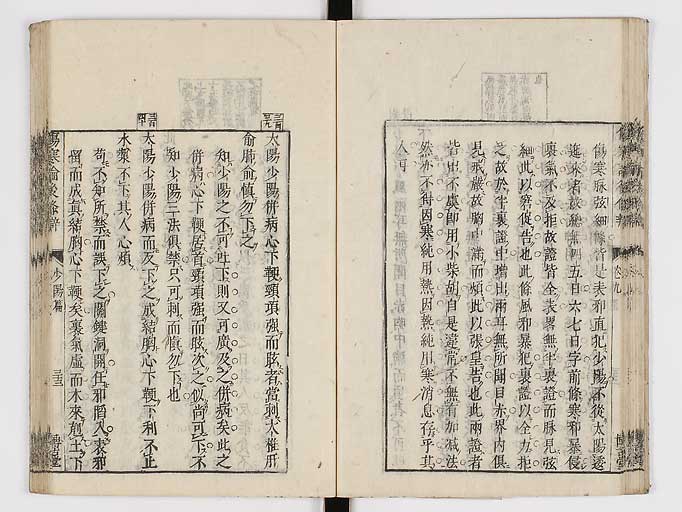 傷寒脉弦細條皆是表邪直犯少陽不從太陽透
迤來者故絶無四五日六七日字前條寒邪暴侵
裏氣不及拒故證皆全表畧無半裏證而脉見弦
細此以禁促告也此條風邪暴犯裏證以全力拒
之故於半裏證中增出兩耳無所聞目赤界内俱
見戒嚴故胸中滿而煩此以張皇告也此兩證者
皆出不虞卽用小柴胡自是違當不無有加减法
然亦不得因寒純用熱因熱純用寒消息存乎其
人耳
太陽少陽併病心下鞕頸項强而眩者當刺大椎肝
俞肺俞愼勿下之
知少陽之不可吐下則又可廣及之併病矣此之
併病心下鞕居首頸項强而眩次之似尚可下不
知少陽三法俱禁只可刺而愼勿下也
太陽少陽併病而反下之成結胸心下鞕下利不止
水漿不下其人心煩
苟不知所禁而誤下之關鍵洞開任邪陷入表邪
留而成眞結胸心下鞕矣裏氣虛而木來剋土下
傷寒論後條辨
少陽篇
卷九